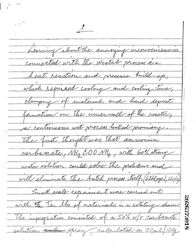 1
Learning about the annoying inconveniences
connected with the Westab process dia
heat reaction and pressure build-up,
which required cooling and cooling time,
clumping of materials and hard deposit
formation on the inner walls of the reactor,
a continuous wet process looked promising.
The first thought was that ammonium
carbamate, NH2COO NH4, with 50% strong
water solution could solve the problems and
will eliminate the batch process itself
Small scale experiment was carried out
with the Ten lbs of materials in a rotating drum.
The impregnation consisted of a 50% w/w carbamate
solution spray, calculated on